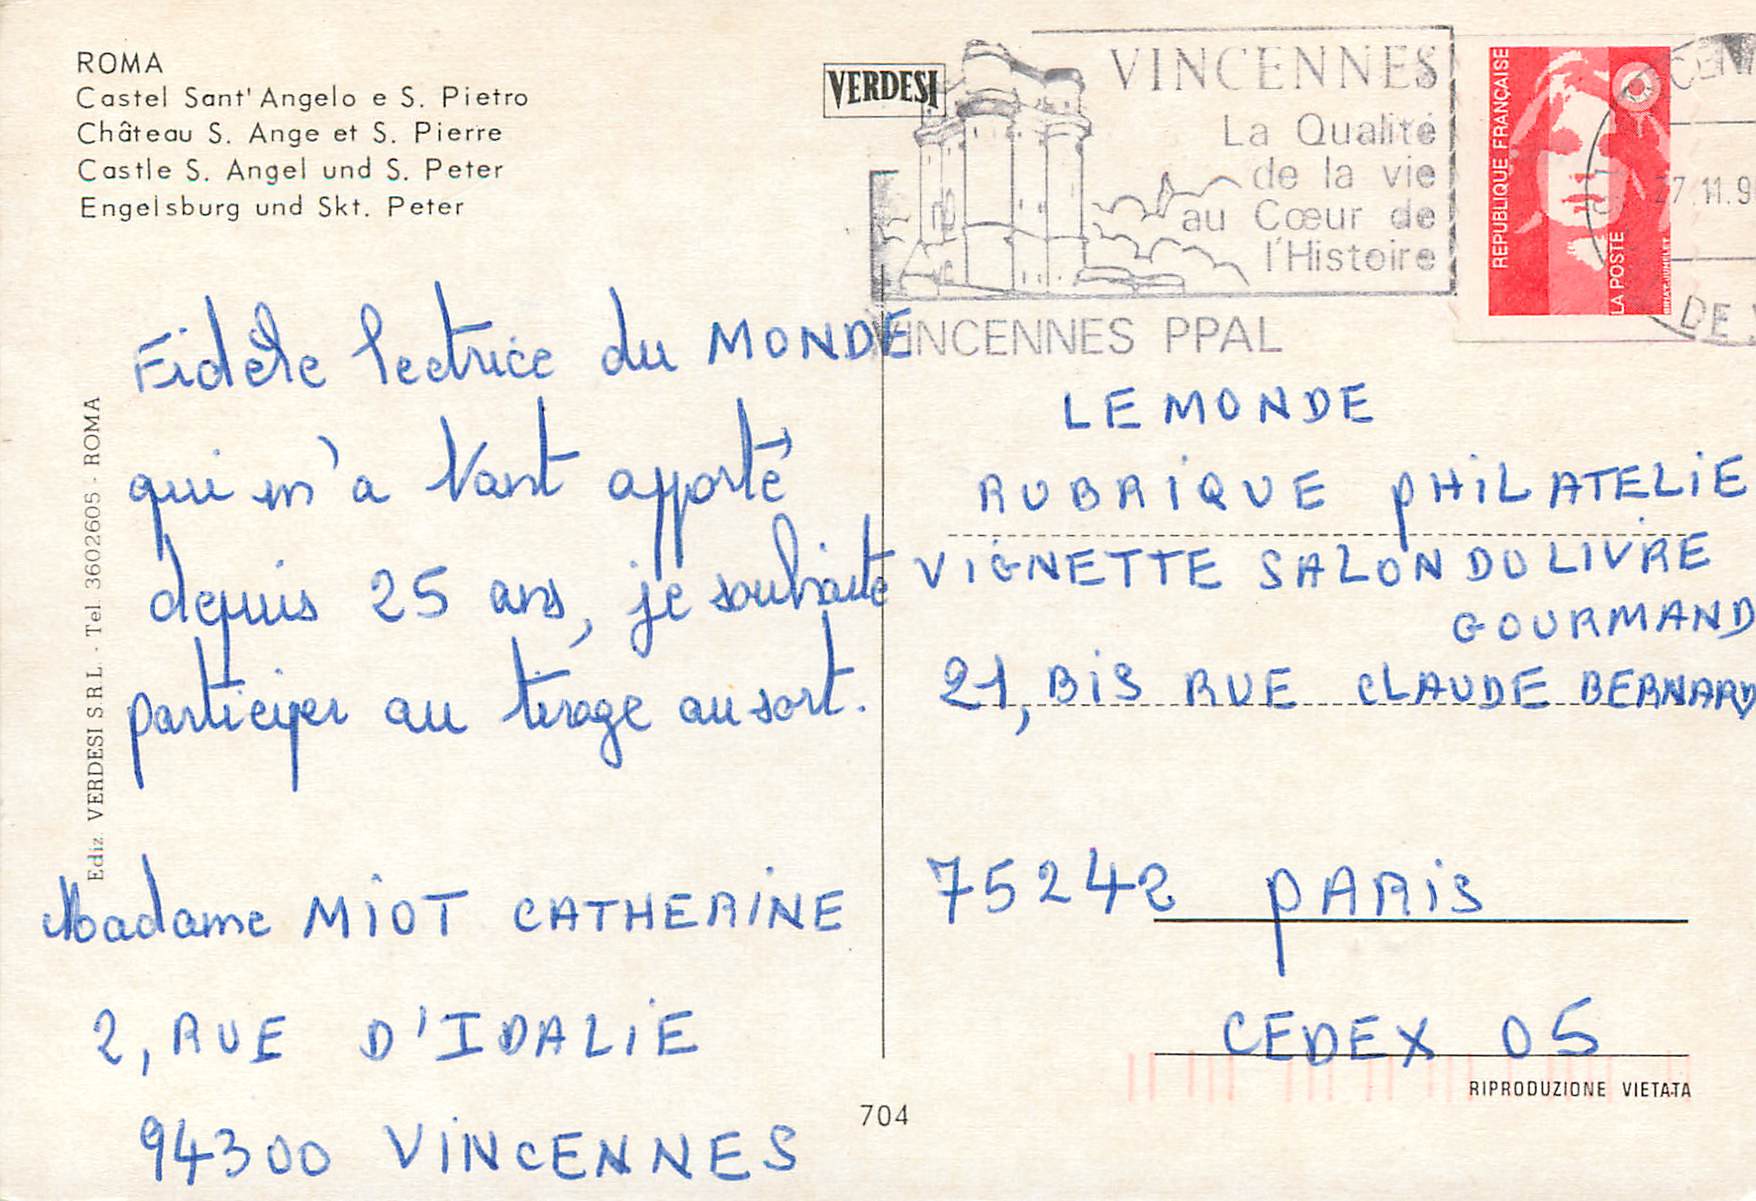 ROMA
Castel Sant' Angelo e S. Pietro
Château S. Ange et S. Pierre
Castle S. Angel und S. Peter
Engelsburg und Skt. Peter
VERDESI
VINCENNES
La Qualité
de la vie
au Cœur de
l'Histoire
VINCENNES PPAL
REPUBLIQUE FRANÇAISE
LA POSTE
27.11.9
DE
Fidèle lectrice du MONDE
qui m'a tant apporté
depuis 25 ans, je souhaite
participer au tirage au sort.
Madame MIOT CATHERINE
2, RUE D'IDALIE
94300 VINCENNES
Ediz. VERDESI S R L. - Tel. 3602605 - ROMA
LE MONDE
RUBRIQUE PHILATELIE
VIGNETTE SALON DU LIVRE
GOURMAND
21, BIS RUE CLAUDE BERNARD
75242 PARIS
CEDEX 05
RIPRODUZIONE VIETATA
704